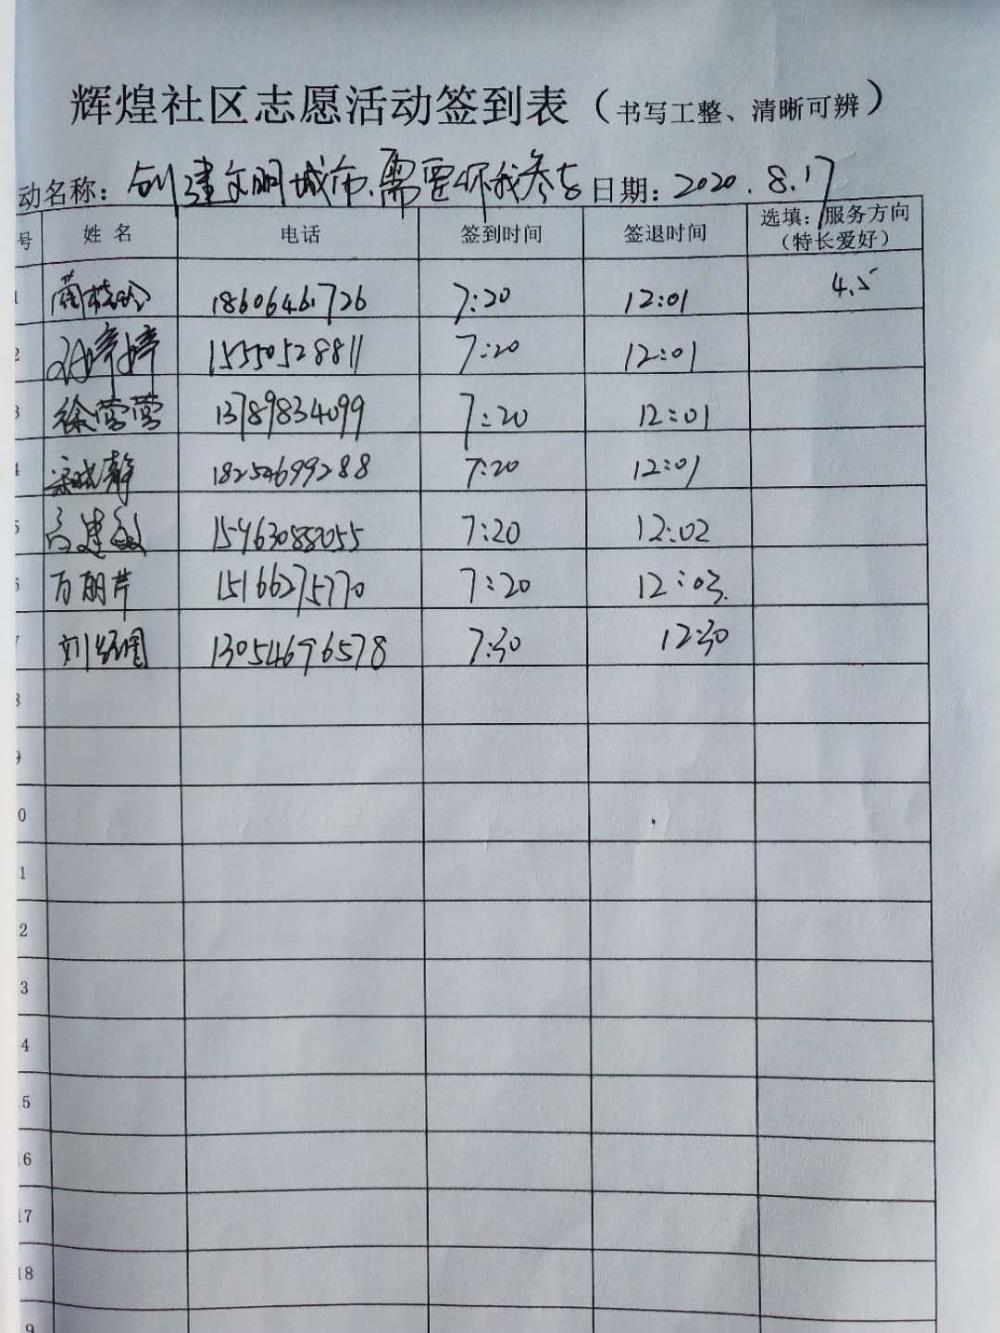 辉煌社区志愿活动签到表（书写工整、清晰可辨）
动名称：创建文明城市、需要你我参与 日期：2020.8.17
号 姓名 电话 签到时间 签退时间 选填：服务方向（特长爱好）
1 18606461726 7:20 12:01 4.5
2 孙婷婷 15550528811 7:20 12:01
3 徐莺莺 13789834099 7:20 12:01
4 宋晓静 18254699288 7:20 12:01
5 高建敏 15963088055 7:20 12:02
6 万丽芹 15166275770 7:20 12:03
7 刘 13054696578 7:30 12:30
8
9
0
1
2
3
4
15
16
17
18
9